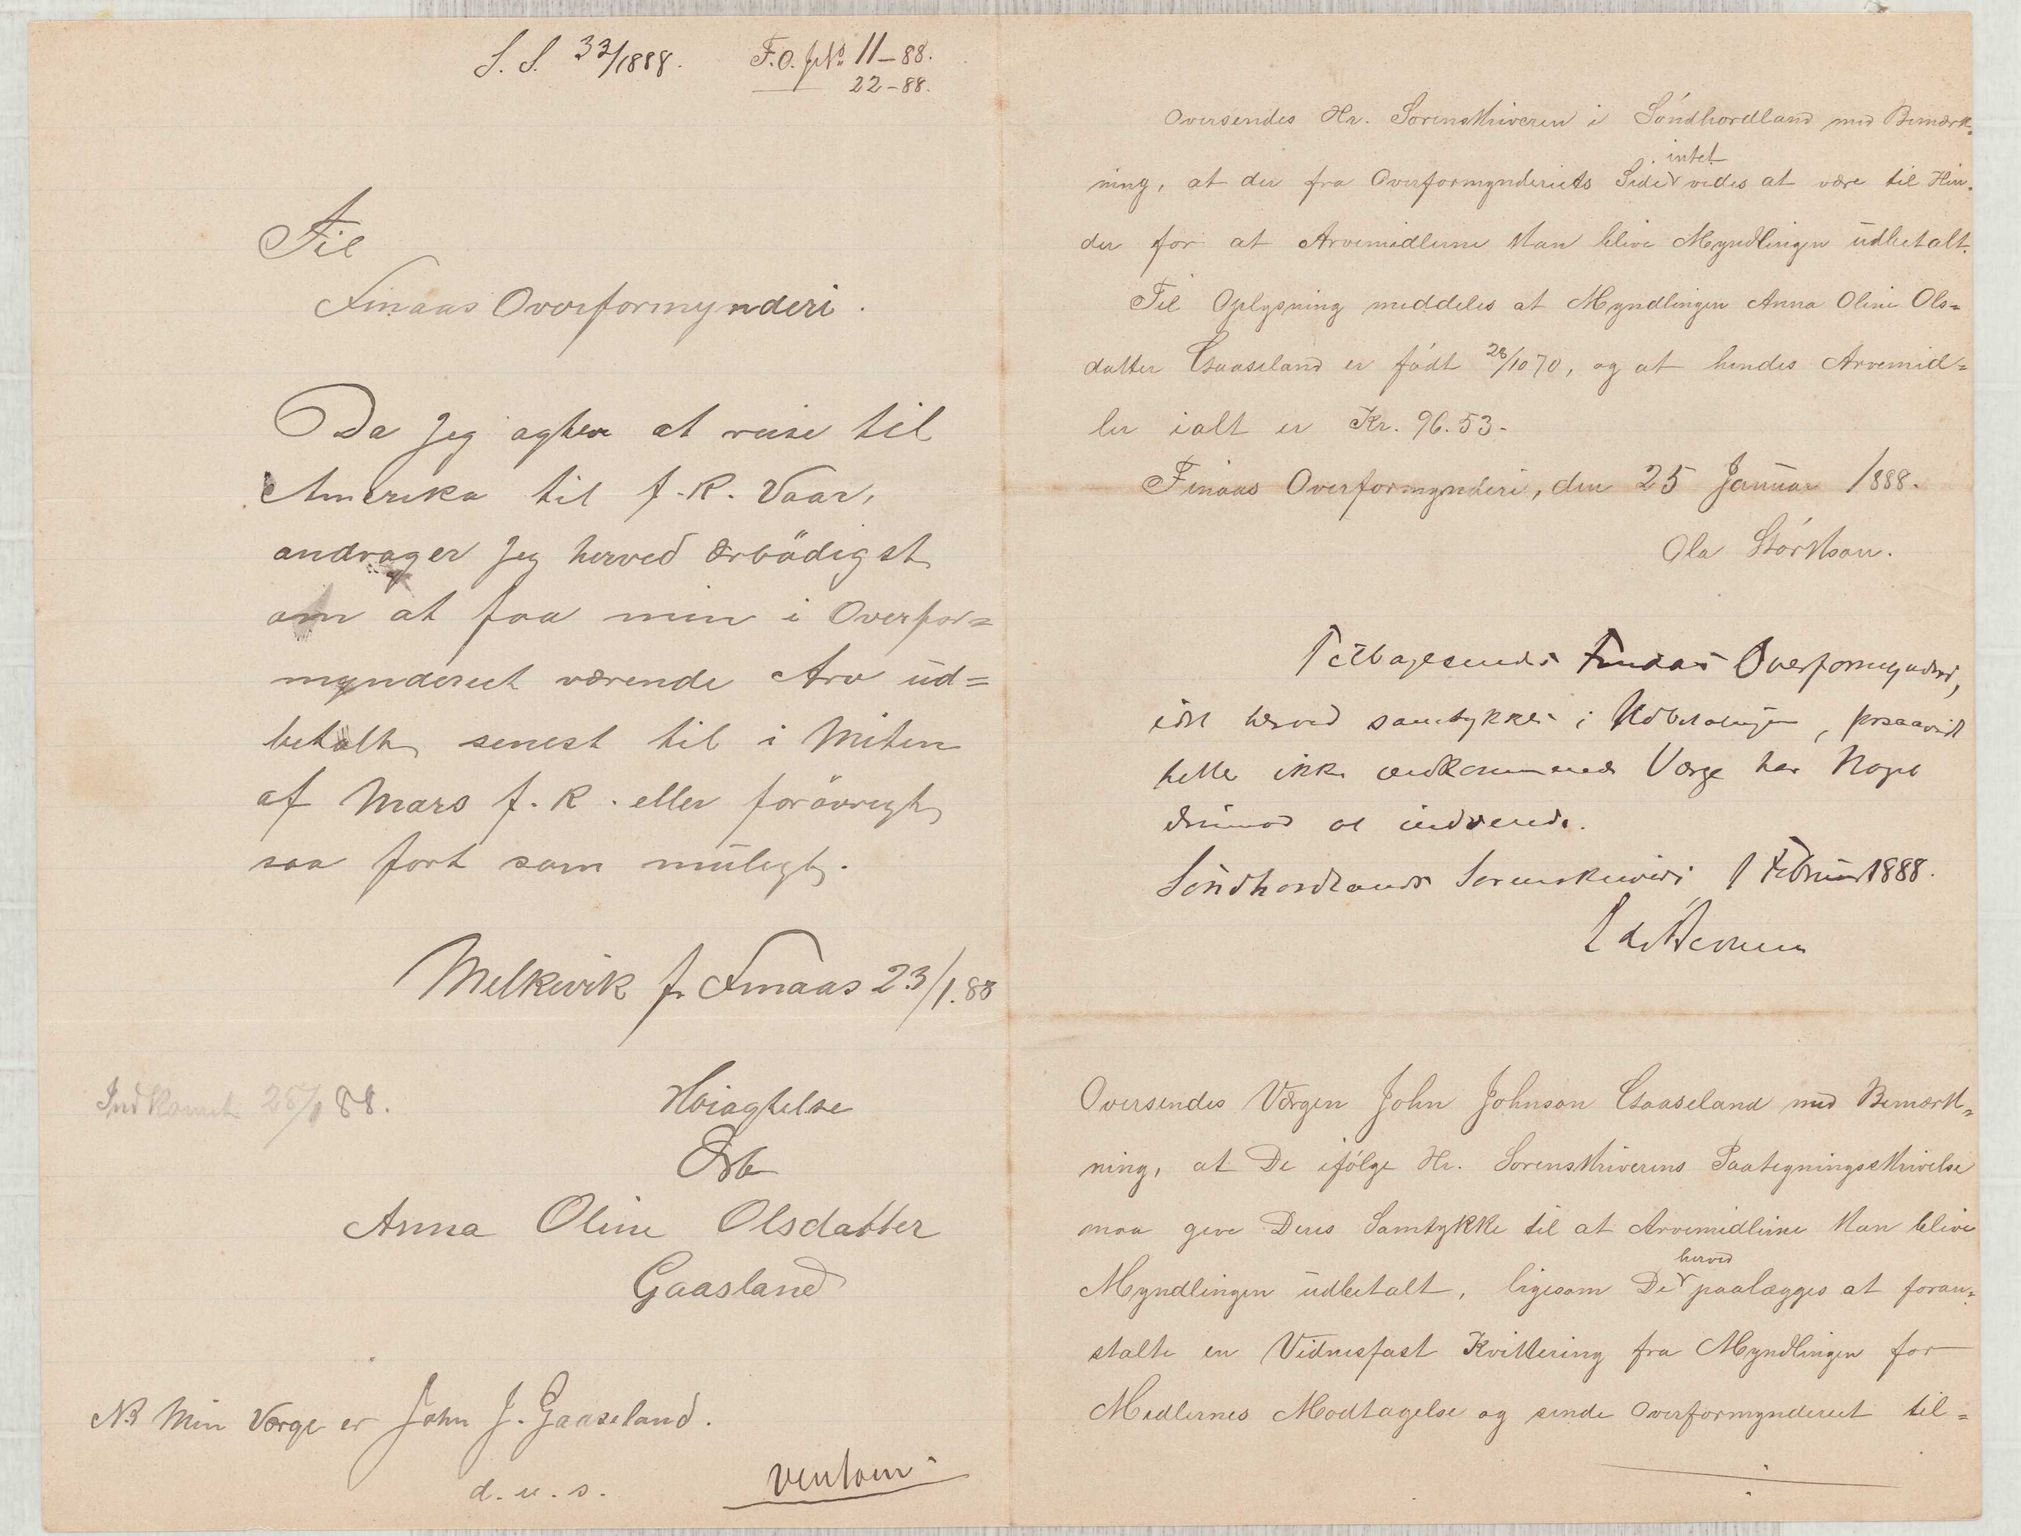 S. S. 33/1888. F.O. JNo 11-88.
22-88.
Til
Finaas Overformynderi.
Da jeg agter at reise til
Amerika til f. K. Vaar,
andrager jeg herved ærbödigst
om at faa min i Overfor=
mynderiet værende Arv ud=
betalt senest til i Miten
af Mars f. K. eller forövrigt
saa fort som muligt.
Melkevik pr Finaas 23/1.88
Indkomet 25/1 88.
Höiagtelse
Erb
Anna Oline Olsdatter
Gaasland
NB Min Værge er John J. Gaaseland.
d. u. s.
Ventom
Oversendes Hr. Sorenskriveren i Söndhordland med Bemærk=
ning, at der fra Overformynderiets Side intet vides at være til Hin=
der for at Arvemidlerne kan blive Myndlingen udbetalt.
Til Oplysning meddeles at Myndlingen Anna Oline Ols=
datter Gaaseland er födt 28/10 70, og at hendes Arvemid=
ler ialt er Kr. 96.53-
Finaas Overformynderi, den 25 Januar 1888.
Ola Störkson.
Tilbagesendes Finaas Overformynderi,
idet herved samtykkes i Udbetalingen, forsaavidt
heller ikke vedkommende Værge har Noget
derimod at indvende.
Söndhordlands Sorenskriveri 1 Februar 1888.
Oversendes Værgen John Johnson Gaaseland med Bemærk=
ning, at De ifölge Hr. Sorenskriverens Paategningsskrivelse
maa give Deres Samtykke til at Arvemidlerne kan blive
Myndlingen udbetalt, ligesom De herved paalægges at foran=
stalte en Vidnesfast Kvittering fra Myndlingen for
Midlernes Modtagelse og sende Overformynderiet til=